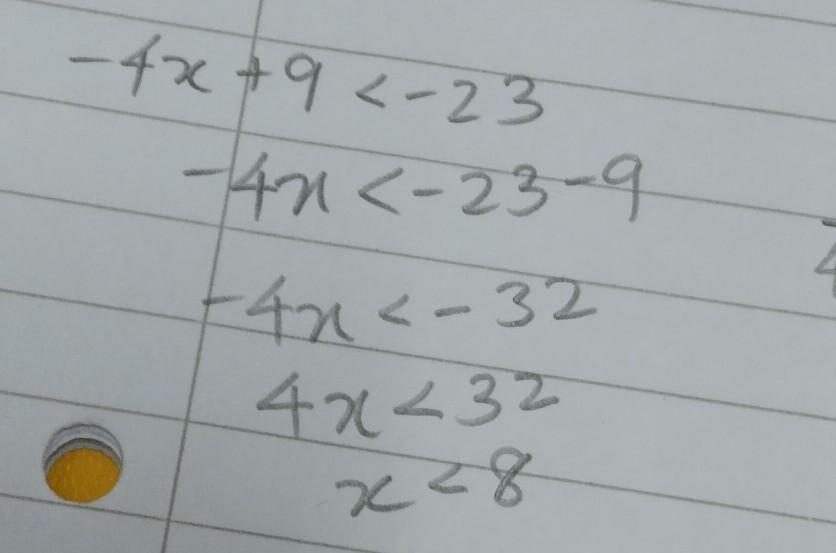 -4x + 9 < -23
-4x < -23 - 9
-4x < -32
4x < 32
x < 8